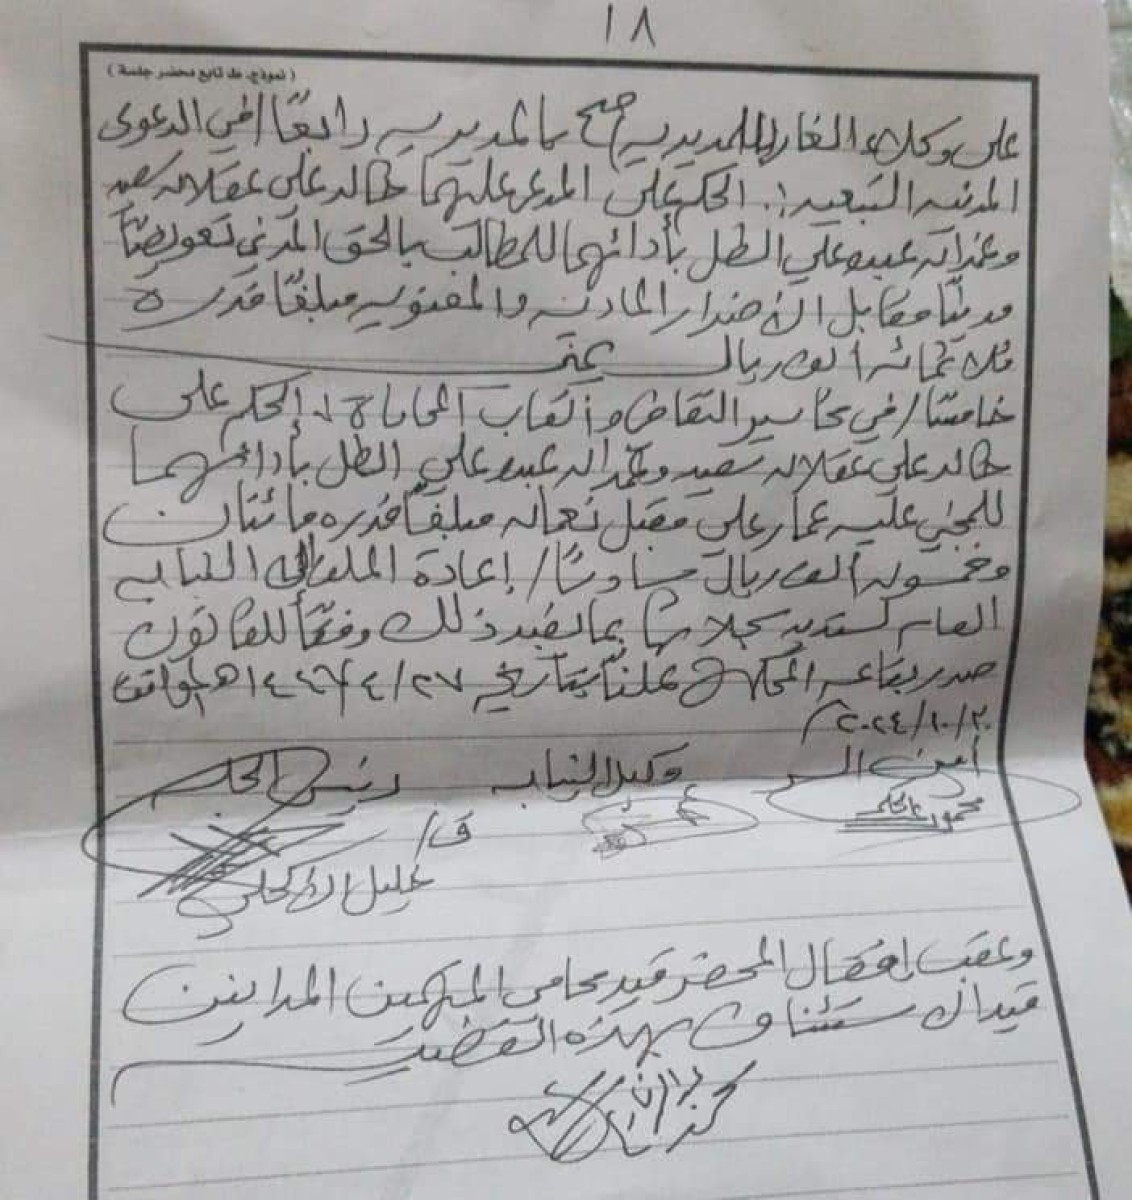 ١٨
( نموذج محل تابع محضر جلسة )
على وكلاء الغارمين للمديرية صح بالمديرية رابعاً/في الدعوى
المدنية التبعية: الحكم على المدعى عليهما خالد علي عقلان سعيد
وعمران عبده علي الطل بأدائهما للمطالب بالحق المدني تعويضاً
مدنياً مقابل الأضرار المادية والمعنوية مبلغاً قدره
ثلاثمائة ألف ريال يمني
خامساً/ في خسائر التقاضي وأتعاب المحاماة الحكم على
خالد علي عقلان سعيد وعمران عبده علي الطل بأدائهما
للمجني عليه عمار علي مقبل نعمان مبلغاً قدره مائتان
وخمسون ألف ريال سادساً/ إعادة الملف إلى النيابة
العامة بما يفيد ذلك وفقاً للقانون
صدر بقاعة المحكمة علناً بتاريخ ٢٧/٤/١٤٤٦هـ الموافق
٢٠/١٠/٢٠٢٤م
أمين السر وكيل النيابة رئيس الجلسة
ق/
خليل الأكحلي
وعقب إقفال المحضر قيد محامي المتهمين المدانين
قيد استئناف بهذه القضية